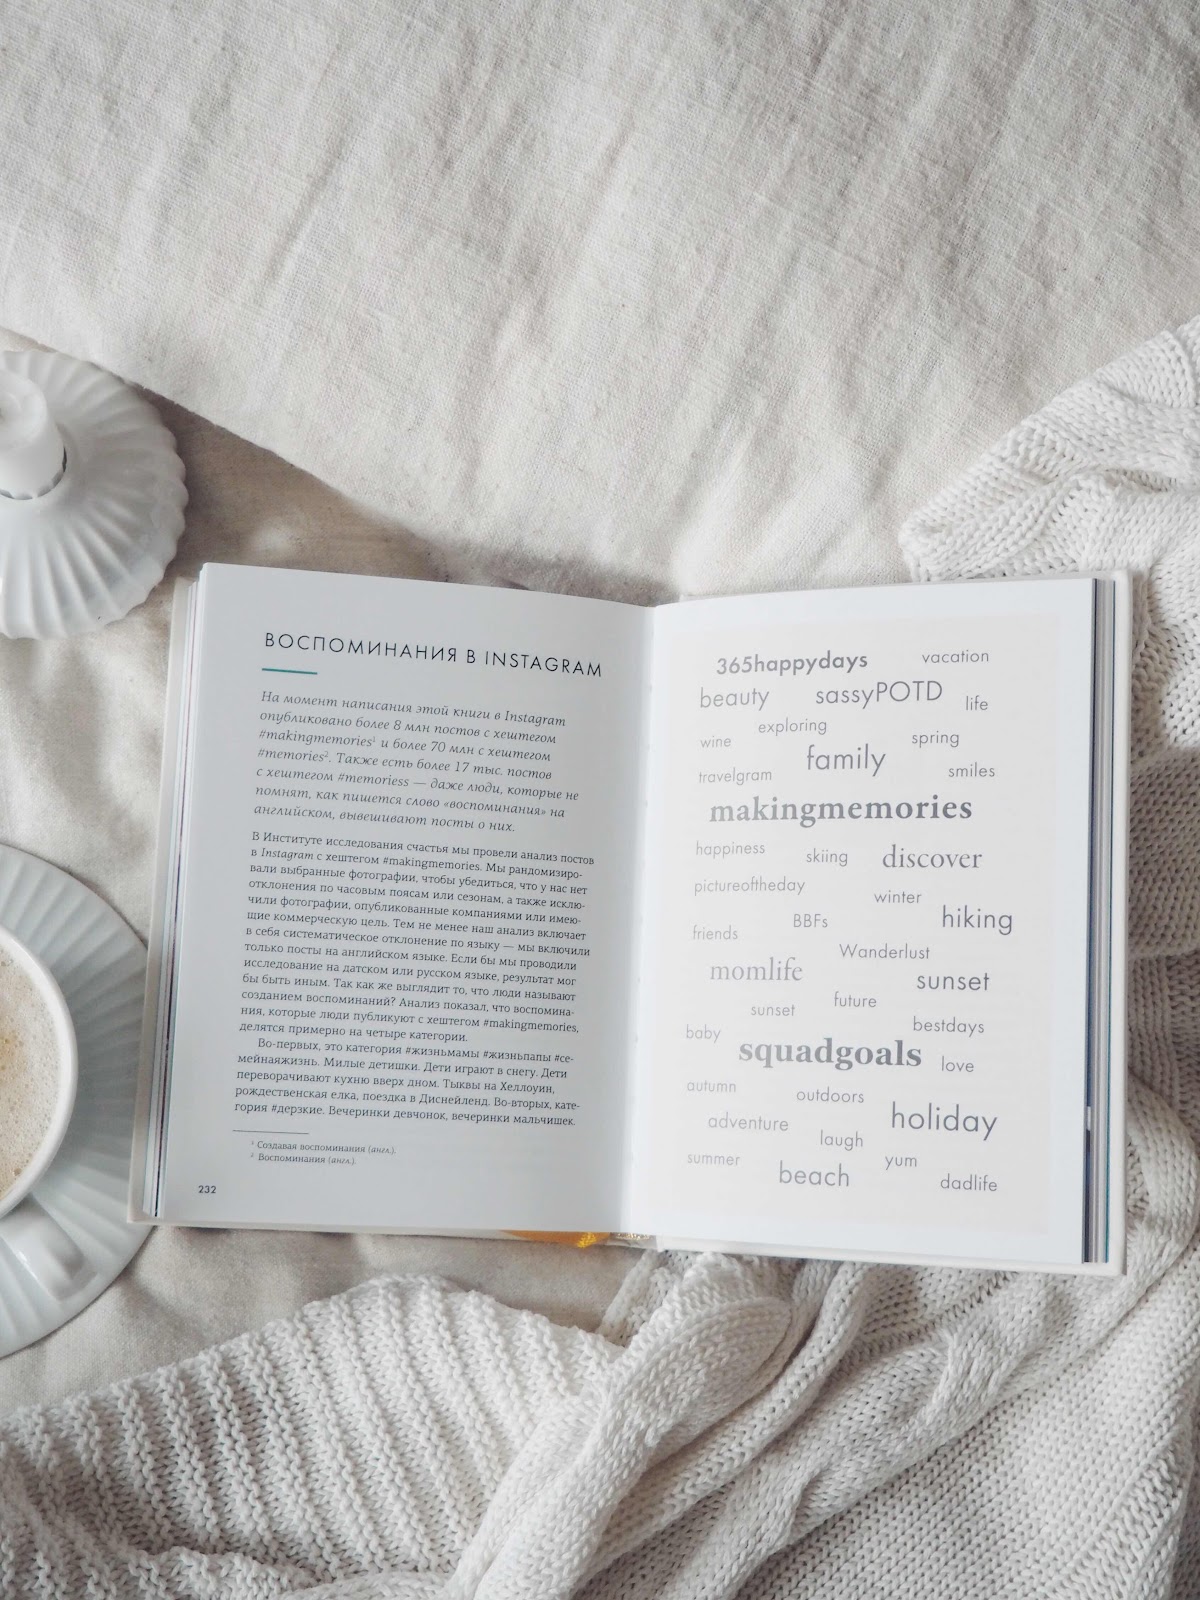 ВОСПОМИНАНИЯ В INSTAGRAM
На момент написания этой книги в Instagram
опубликовано более 8 млн постов с хештегом
#makingmemories¹ и более 70 млн с хештегом
#memories². Также есть более 17 тыс. постов
с хештегом #memoriess — даже люди, которые не
помнят, как пишется слово «воспоминания» на
английском, вывешивают посты о них.
В Институте исследования счастья мы провели анализ постов
в Instagram с хештегом #makingmemories. Мы рандомизиро-
вали выбранные фотографии, чтобы убедиться, что у нас нет
отклонения по часовым поясам или сезонам, а также исклю-
чили фотографии, опубликованные компаниями или имею-
щие коммерческую цель. Тем не менее наш анализ включает
в себя систематическое отклонение по языку — мы включили
только посты на английском языке. Если бы мы проводили
исследование на датском или русском языке, результат мог
бы быть иным. Так как же выглядит то, что люди называют
созданием воспоминаний? Анализ показал, что воспомина-
ния, которые люди публикуют с хештегом #makingmemories,
делятся примерно на четыре категории.
Во-первых, это категория #жизньмамы #жизньпапы #се-
мейнаяжизнь. Милые детишки. Дети играют в снегу. Дети
переворачивают кухню вверх дном. Тыквы на Хеллоуин,
рождественская елка, поездка в Диснейленд. Во-вторых, кате-
гория #дерзкие. Вечеринки девчонок, вечеринки мальчишек.
¹ Создавая воспоминания (англ.).
² Воспоминания (англ.).
232
365happydays vacation
beauty sassyPOTD life
exploring
wine spring
family
travelgram smiles
makingmemories
happiness skiing discover
pictureoftheday
winter
BBFs hiking
friends
Wanderlust
momlife sunset
sunset future
baby bestdays
squadgoals love
autumn outdoors
adventure holiday
laugh
summer yum
beach dadlife